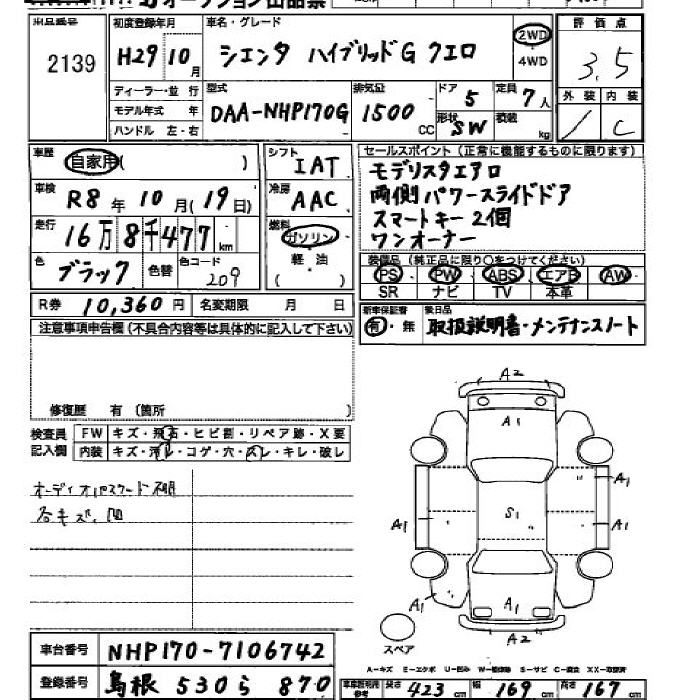 オークション出品票
出品番号
2139
初度登録年月
H29 10月
車名・グレード
シエンタ ハイブリッドG クエロ
2WD
・
4WD
評価点
3.5
外装 内装
/ C
ディーラー・並行
モデル年式 年
ハンドル 左・右
型式
DAA-NHP170G-
排気量
1500 CC
ドア 5
形状 SW
定員 7人
積載 kg
車歴
自家用( )
シフト
IAT
車検
R8年10月(19日)
冷房
AAC
走行
16万8千477km
燃料
ガソリン・
軽油
( )
色
ブラック
色替
色コード
209
セールスポイント (正常に機能するものに限ります)
モデリスタエアロ
両側パワースライドドア
スマートキー2個
ワンオーナー
装備品 (純正品に限り○をつけてください)
PS・PW・ABS・エアB・AW
SR ナビ TV 本革
R券 10,360円 名変期限 月 日
新車保証書
有・無
後日品
取扱説明書・メンテナンスノート
注意事項申告欄 (不具合内容等は具体的に記入して下さい)
修復歴 有 (箇所 )
検査員
記入欄
FW キズ・飛石・ヒビ割・リペア跡・X要
内装 キズ・汚レ・コゲ・穴・スレ・キレ・破レ
オーディオパスワード不明
各キズ、凹
A2
A1
A1
A1
S1
A1
A1
A1
A2
スペア
A-キズ E-エクボ U-凹み W-補修跡 S-サビ C-腐食 XX-取替済
車台番号
NHP170-7106742
登録番号
島根 530 ら 870
車庫証明用参考
長さ 423 cm 幅 169 cm 高さ 167 cm